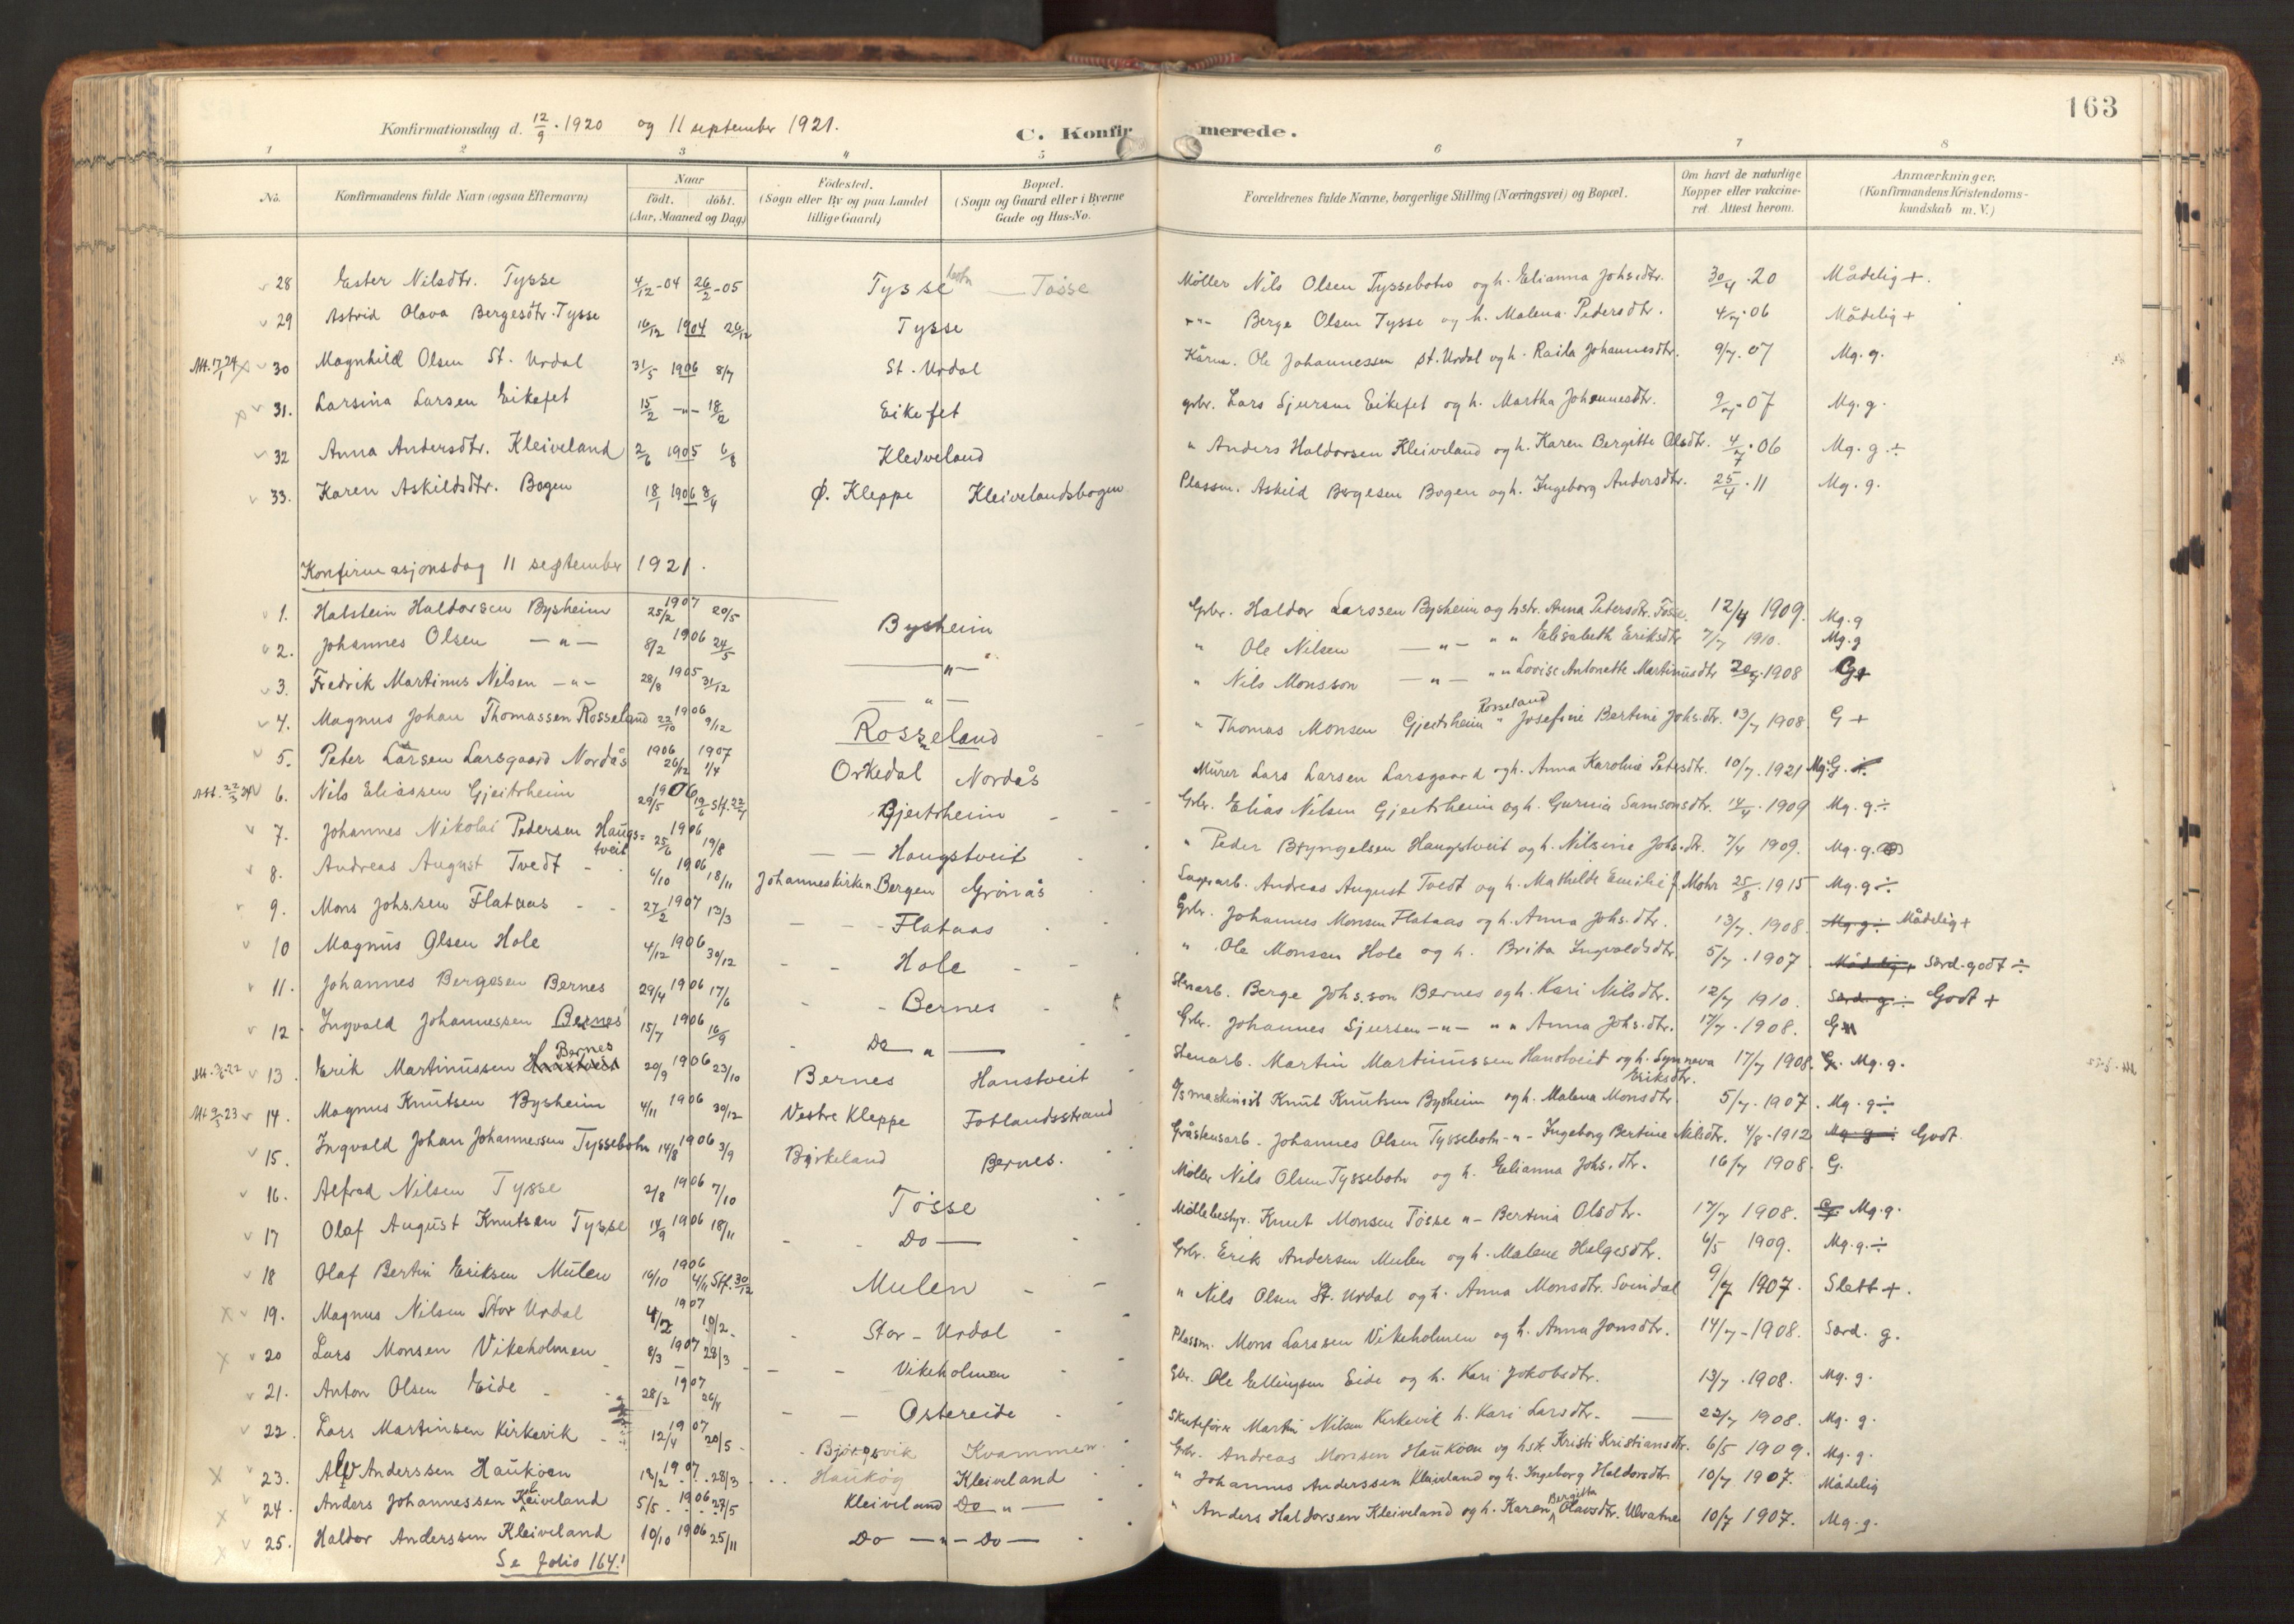 163
Konfirmationsdag d. 12/9 . 1920 og 11 september 1921.
C. Konfirmerede.
1 2 3 4 5 6 7 8
No. Konfirmandens fulde Navn (ogsaa Efternavn) Naar födt. döbt. (Aar, Maaned og Dag) Födested. (Sogn eller By og paa Landet tillige Gaard) Bopæl. (Sogn og Gaard eller i Byerne Gade og Hus-No. Forældrenes fulde Navne, borgerlige Stilling (Næringsvei) og Bopæl. Om havt de naturlige Kopper eller vakcineret. Attest herom. Anmærkninger. (Konfirmandens Kristendomskundskab m. V.)
28 Ester Nilsdtr. Tysse 4/12-04 26/2-05 Tysse botn — Tøsse Møller Nils Olsen Tyssebotn og h. Elianna Johs.dtr. 30/4 . 20 Mådelig +.
29 Astrid Olava Bergesdtr. Tysse 16/12 1904 26/12 Tysse -"- Berge Olsen Tysse og h. Malena Pedersdtr. 4/7 . 06 Mådelig +
30 Magnhild Olsen St. Urdal 31/5 1906 8/7 St. Urdal Ole Johannessen St. Urdal og h. Raila Johannesdtr. 9/7 . 07 Mg. g.
31. Larsina Larsen Eikefet 15/2 -"- 18/2 Eikefet grbr. Lars Sjursen Eikefet og h. Martha Johannesdtr. 9/7 . 07 Mg. g.
32 Anna Andersdtr. Kleiveland 2/6 1905 6/8 Kleiveland " Anders Haldorsen Kleiveland og h. Karen Bergitte Olsdtr. 4/7 . 06 Mg. g ÷
33. Karen Askildsdtr. Bogen 18/1 1906 8/4 Ø. Kleppe Kleivelandsbogen Plassm. Askild Bergesen Bogen og h. Ingeborg Andersdtr. 25/4 . 11 Mg. g.
Konfirmasjonsdag 11 september 1921.
1. Halstein Haldorsen Bysheim 25/2 1907 20/5 Bysheim Grbr. Haldor Larssen Bysheim og hstr. Anna Petersdtr. Fosse. 12/4 1909. Mg. g
2. Johannes Olsen -"- 8/2 1906 24/5 -"- " Ole Nilsen -"- " " Elisabeth Eriksdtr 7/7 1910. Mg. g
3. Fredrik Martinus Nilsen -"- 28/8 1905 31/12 -"- " Nils Monsson -"- " " Lovise Antonette Martinusdtr 20/7 . 1908 G+
4. Magnus Johan Thomassen Rosseland 22/10 1906 9/12 Rosseland " Thomas Monsen Gjeitsheim Rosseland " Josefine Bertine Johs.dtr. 13/7 1908. G +
5. Peter Larsen Larsgaard Nordås 1906 26/12 1907 1/4 Orkedal Nordås Murer Lars Larsen Larsgaard og h. Anna Karolinė Petersdtr. 10/7 . 1921 Mg. G.
6. Nils Eliassen Gjeitrheim 29/5 1906 Gjeitrheim Grbr. Elias Nilsen Gjeitrheim og h. Gurina Samsonsdtr. 14/4 . 1909 Mg. g. ÷
7. Johannes Nikolai Pedersen Haugstveit 25/6 1906 19/8 — — Haugstveit " Peder Bryngelsen Haugstveit og h. Nilsine Johs.dtr. 7/4 1909. Mg. g.
8. Andreas August Tvedt 6/10 1906 18/11 Johanneskirken Bergen Grønås Andreas August Tvedt og h. Mathilde Emilie f. Mohr 25/8 . 1915 Mg. g ÷
9. Mons Johs.sen Flataas 27/2 1907 13/3 Flataas Grbr. Johannes Monsen Flataas og h. Anna Johs.dtr. 13/7 . 1908. Mg. g ÷ Mådelig +
10 Magnus Olsen Hole 4/12 1906 30/12 Hole " Ole Monsen Hole og h. Brita Ingvaldsdtr. 5/7 . 1907 . Mådelig + Særd. godt ÷
11. Johannes Bergesen Bernes 29/4 1906 17/6 Bernes Stenarb. Berge Johs.son Bernes og h. Kari Nilsdtr. 12/7 1910. Særd. g ÷ Godt +
12 Ingvald Johannessen Bernes 15/7 1906 16/9 Do " — Grbr. Johannes Sjursen -"- " " Anna Johs.dtr. 17/7 . 1908. G
13. Erik Martinussen Bernes 20/9 1906 23/10 Bernes Hanstveit Stenarb. Martin Martinussen Hanstveit og h. Synneva Eriksdtr. 17/7 1908. G. Mg. g.
14. Magnus Knutsen Bysheim 4/11 1906 30/12 Vestre Kleppe Fotlandsstrand maskinist Knut Knutsen Bysheim og h. Malena Monsdtr. 5/7 . 1907 . Mg. g ÷
15. Ingvald Johan Johannessen Tyssebotn 14/8 1906 3/9 Birkeland Bernes. Gråstensarb. Johannes Olsen Tyssebotn -"- Ingeborg Bertine Nilsdtr. 4/8 . 1912 Mg. g ÷ Godt
16. Alfred Nilsen Tysse 2/8 1906 7/10 Tøsse Møller Nils Olsen Tyssebotn og h. Elianna Johs.dtr. 16/7 1908. G.
17 Olaf August Knutsen Tysse 14/9 1906 18/11 Do — Møllebestyr. Knut Monsen Tøsse -"- Bertina Olsdtr. 17/7 1908. G. Mg. g.
18 Olaf Bertin Eriksen Mulen 16/10 1906 4/11 Stf. 30/12 Mulen Grbr. Erik Andersen Mulen og h. Malene Helgesdtr. 6/5 1909. Mg. g. ÷
19. Magnus Nilsen Stor Urdal 4/2 1907 10/2 Stor-Urdal " Nils Olsen St. Urdal og h. Anna Monsdtr. Svindal 9/7 1907. Slett +.
20 Lars Monsen Vikeholmen 8/3 1907 28/3 Vikeholmen Plassm. Mons Larssen Vikeholmen og h. Anna Jonsdtr. 14/7 - 1908. Særd. g.
21. Anton Olsen Eide 28/2 1907 26/4 Ostereide Gbr. Ole Ellingsen Eide og h. Kari Jakobsdtr. 13/7 . 1908. Mg. g.
22. Lars Martinsen Kirkevik 12/4 1907 20/5 Bjørgsvik Kvammen Skutefører Martin Nilsen Kirkevik h. Kari Larsdtr. — 22/7 1908. Mg. g.
23. Alv Anderssen Haukøen 18/2 1907 28/3 Haukøy Kleiveland Grbr. Andreas Monsen Haukøen og hstr. Kristi Kristiansdtr. 6/5 1909. Mg. g.
24. Anders Johannessen Kleiveland 5/5 1906 27/5 Kleiveland Do " — " Johannes Anderssen Kleiveland og h. Ingeborg Haldorsdtr. 10/7 1907. Mådelig
25. Haldor Anderssen Kleiveland 10/10 1906 25/11 Do -"- Do — " Anders Haldorsen Kleiveland og h. Karen Bergitta Olavsdtr. Ulvatne 10/7 1907. Mg. g.
Se folio 164!